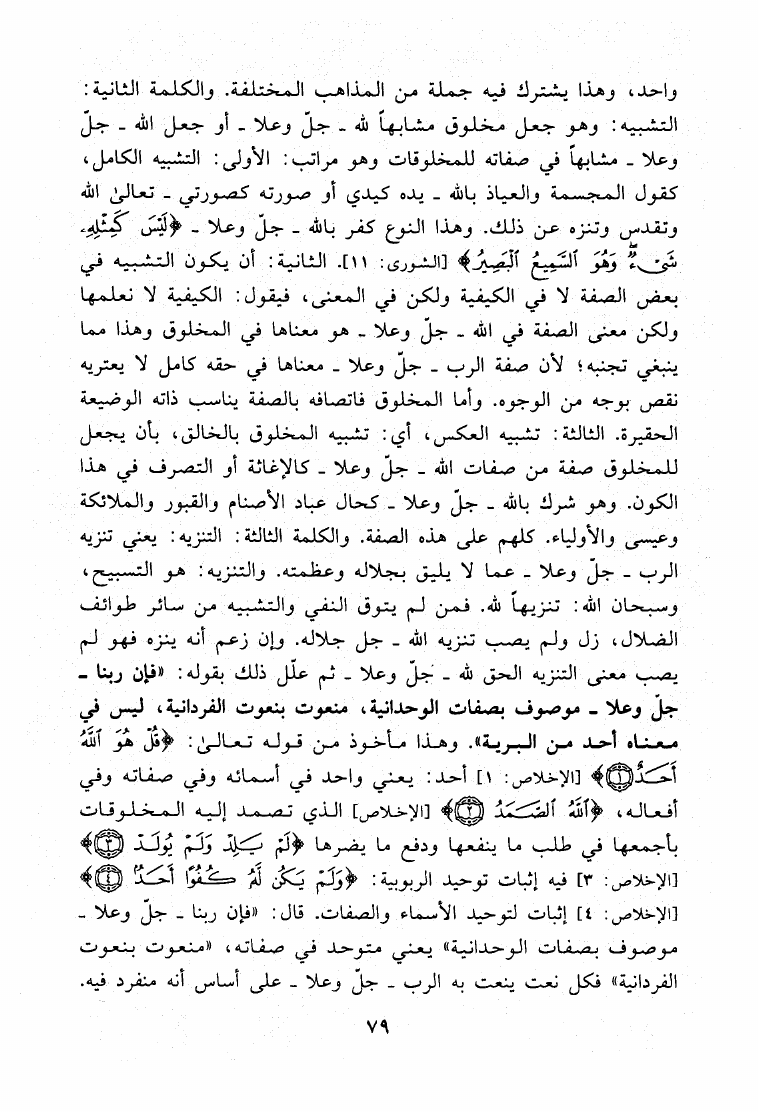 واحد، وهذا يشترك فيه جملة من المذاهب المختلفة. والكلمة الثانية:
التشبيه: وهو جعل مخلوق مشابهاً لله ـ جلّ وعلا ـ أو جعل الله ـ جلّ
وعلا ـ مشابهاً في صفاته للمخلوقات وهو مراتب: الأولى: التشبيه الكامل،
كقول المجسمة والعياذ بالله ـ يده كيدي أو صورته كصورتي ـ تعالىٰ الله
وتقدس وتنزه عن ذلك. وهذا النوع كفر بالله ـ جلّ وعلا ـ ﴿لَيْسَ كَمِثْلِهِۦ
شَىْءٌ ۖ وَهُوَ ٱلسَّمِيعُ ٱلْبَصِيرُ﴾ [الشورى: ١١]. الثانية: أن يكون التشبيه في
بعض الصفة لا في الكيفية ولكن في المعنى، فيقول: الكيفية لا نعلمها
ولكن معنى الصفة في الله ـ جلّ وعلا ـ هو معناها في المخلوق وهذا مما
ينبغي تجنبه؛ لأن صفة الرب ـ جلّ وعلا ـ معناها في حقه كامل لا يعتريه
نقص بوجه من الوجوه. وأما المخلوق فاتصافه بالصفة يناسب ذاته الوضيعة
الحقيرة. الثالثة: تشبيه العكس، أي: تشبيه المخلوق بالخالق، بأن يجعل
للمخلوق صفة من صفات الله ـ جلّ وعلا ـ كالإغاثة أو التصرف في هذا
الكون. وهو شرك بالله ـ جلّ وعلا ـ كحال عباد الأصنام والقبور والملائكة
وعيسى والأولياء. كلهم على هذه الصفة. والكلمة الثالثة: التنزيه: يعني تنزيه
الرب ـ جلّ وعلا ـ عما لا يليق بجلاله وعظمته. والتنزيه: هو التسبيح،
وسبحان الله: تنزيهاً لله. فمن لم يتوق النفي والتشبيه من سائر طوائف
الضلال، زل ولم يصب تنزيه الله ـ جل جلاله. وإن زعم أنه ينزه فهو لم
يصب معنى التنزيه الحق لله ـ جلّ وعلا ـ ثم علّل ذلك بقوله: «فإن ربنا ـ
جلّ وعلا ـ موصوف بصفات الوحدانية، منعوت بنعوت الفردانية، ليس في
معناه أحد من البرية». وهذا مأخوذ من قوله تعالىٰ: ﴿قُلْ هُوَ ٱللَّهُ
أَحَدٌ ۝١﴾ [الإخلاص: ١] أحد: يعني واحد في أسمائه وفي صفاته وفي
أفعاله، ﴿ٱللَّهُ ٱلصَّمَدُ ۝٢﴾ [الإخلاص] الذي تصمد إليه المخلوقات
بأجمعها في طلب ما ينفعها ودفع ما يضرها ﴿لَمْ يَلِدْ وَلَمْ يُولَدْ ۝٣﴾
[الإخلاص: ٣] فيه إثبات توحيد الربوبية: ﴿وَلَمْ يَكُن لَّهُۥ كُفُوًا أَحَدٌۢ ۝٤﴾
[الإخلاص: ٤] إثبات لتوحيد الأسماء والصفات. قال: «فإن ربنا ـ جلّ وعلا ـ
موصوف بصفات الوحدانية» يعني متوحد في صفاته، «منعوت بنعوت
الفردانية» فكل نعت ينعت به الرب ـ جلّ وعلا ـ على أساس أنه منفرد فيه.
٧٩